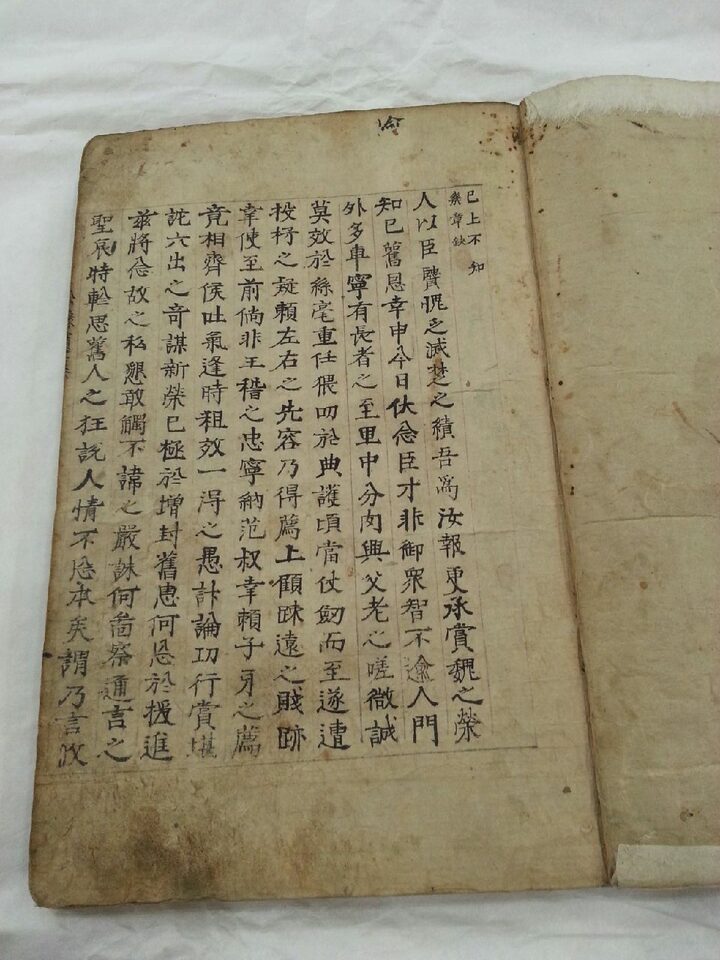 已上不知
幾章缺
人以臣賸脫之滅楚之績吾爲汝報更承賞魏之榮
知已舊恩幸申今日伏念臣才非御衆智不逾人門
外多車寧有長者之至里中分肉興父老之嗟微誠
莫效於絲毫重任猥叨於典護頃當仗劒而至遂遭
投杼之疑賴左右之先容乃得薦上顧踈遠之賤跡
幸使至前倘非王稽之忠寧納范叔幸賴子牙之薦
竟相齊侯吐氣逢時粗效一得之愚計論功行賞堪
詫六出之奇謀新榮已極於增封舊恩何忽於援進
茲將念故之私懇敢觸不諱之嚴誅何啚察邇言之
聖衷特軫思舊人之狂說人情不忘本矣謂乃言政